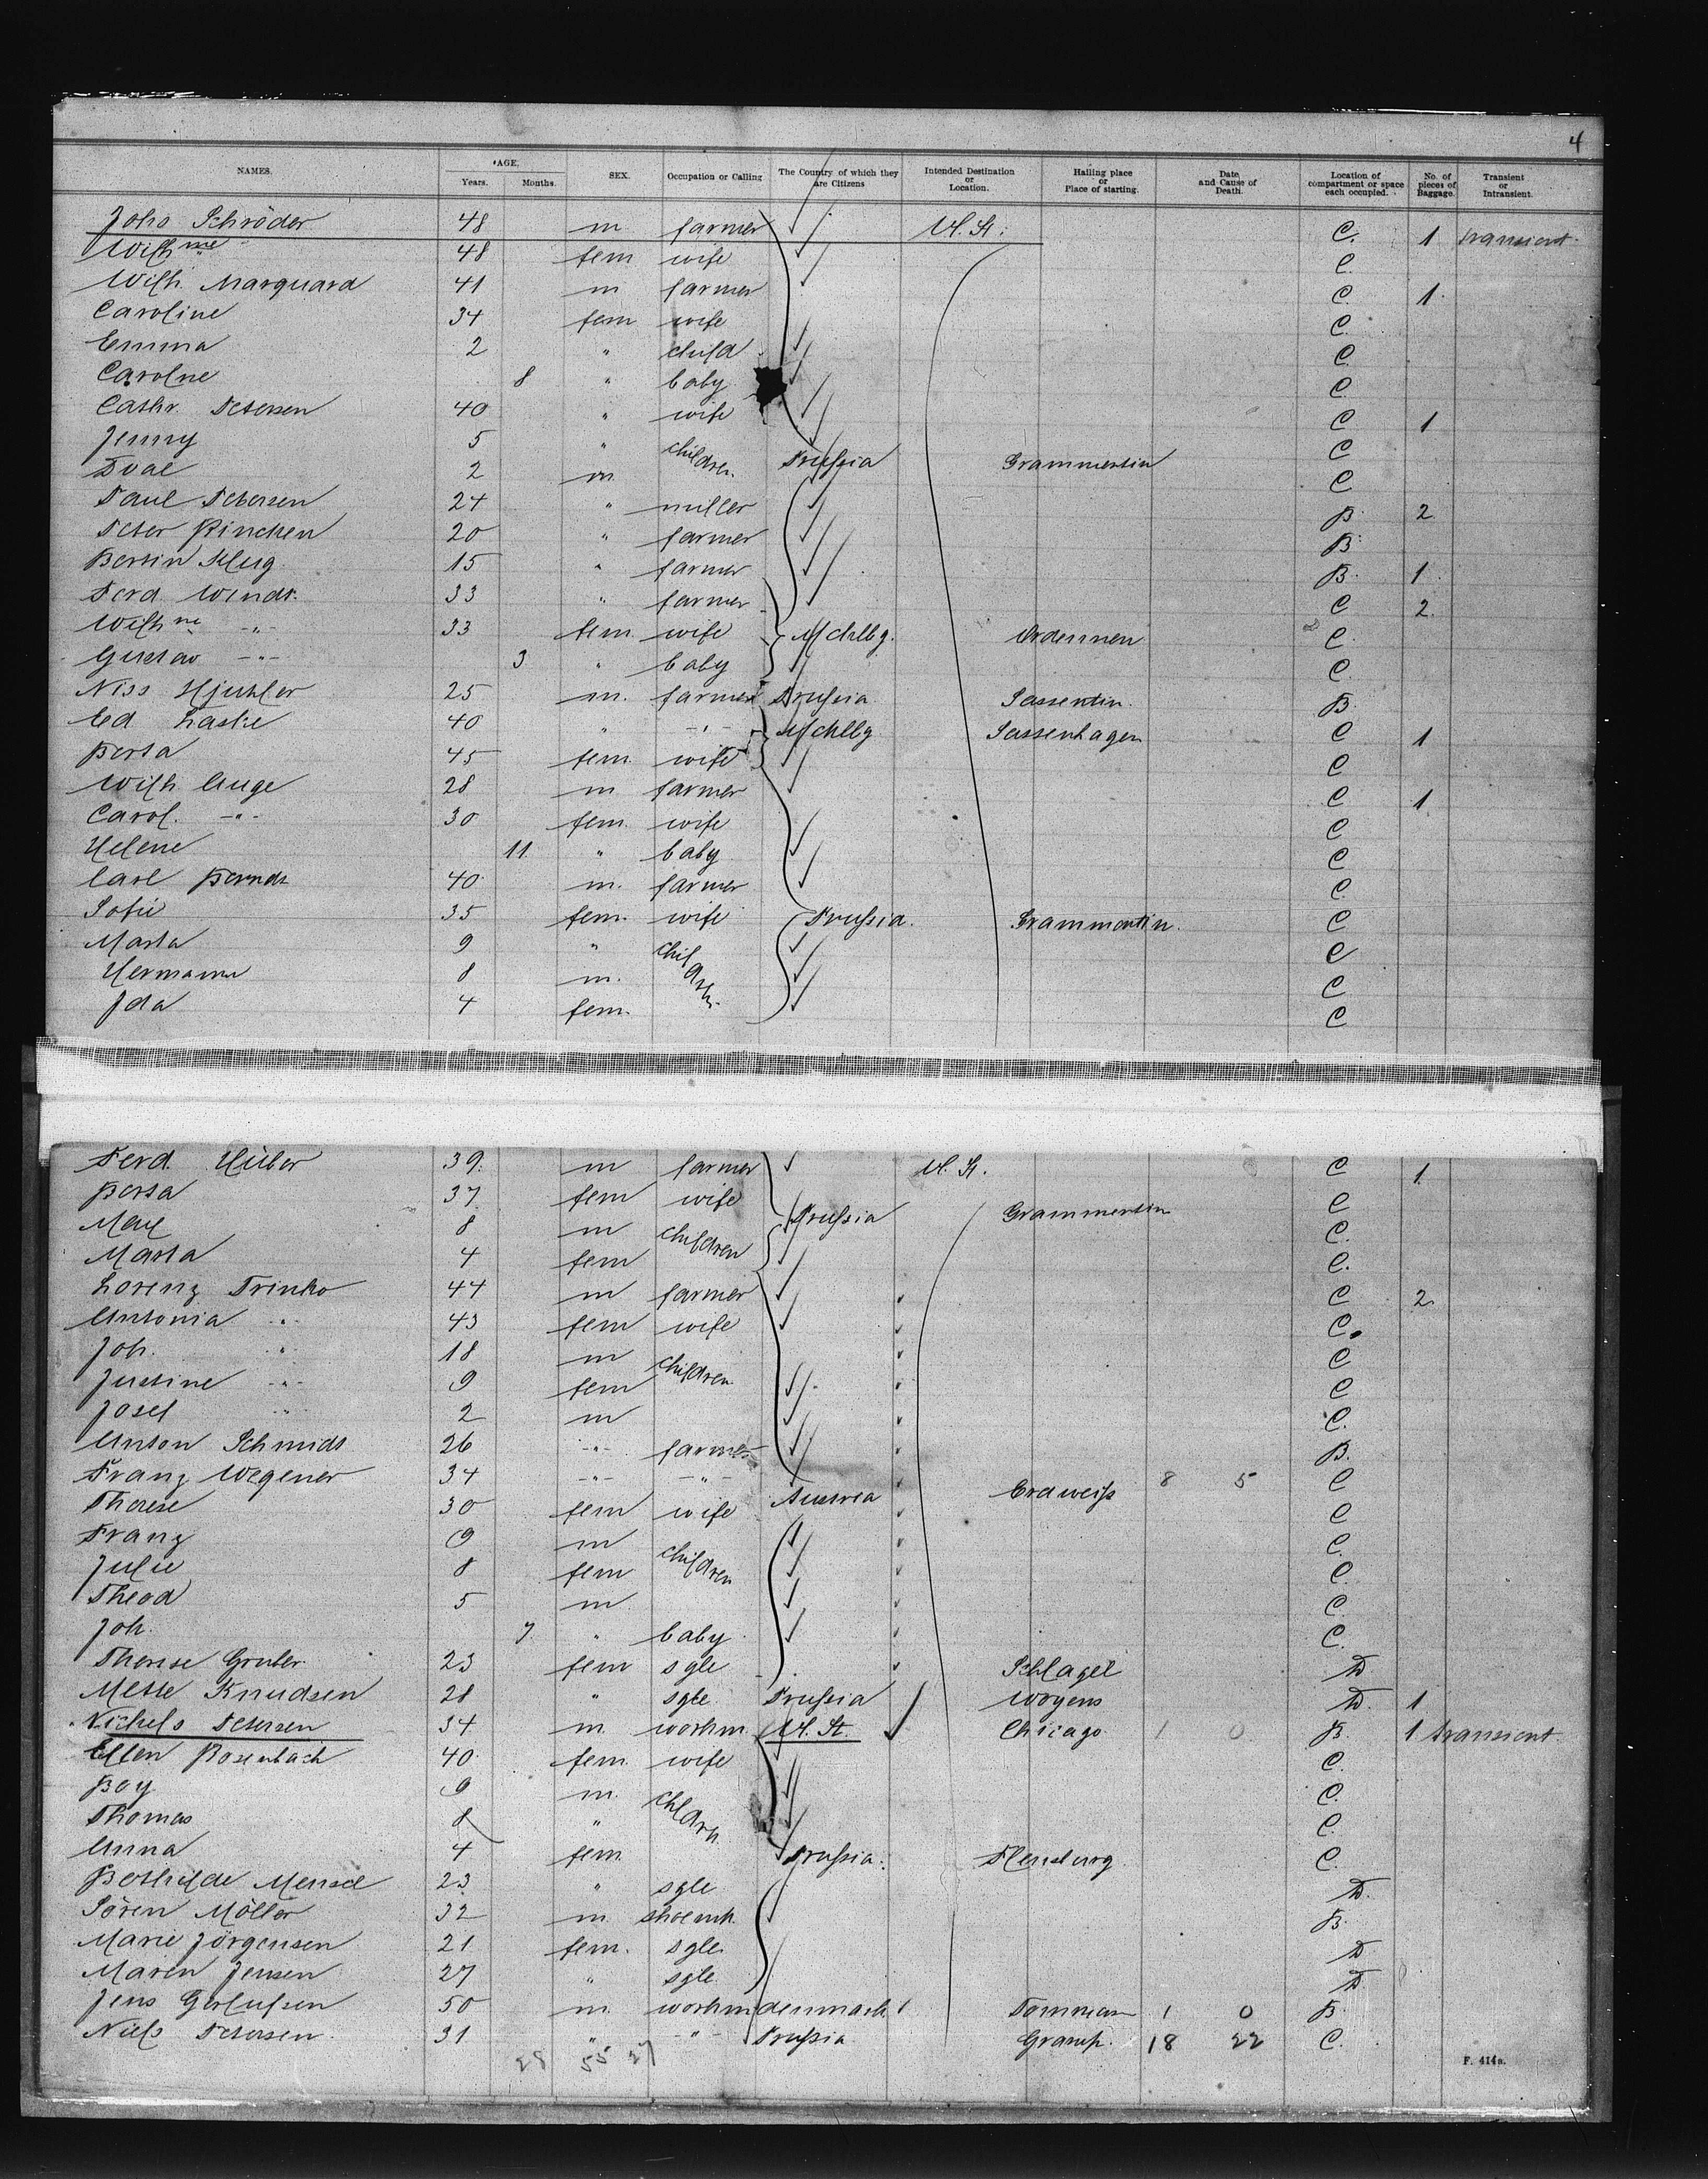 4
NAMES. AGE. Years. Months. SEX. Occupation or Calling The Country of which they are Citizens Intended Destination or Location. Hailing place or Place of starting. Date and Cause of Death. Location of compartment or space each occupied. No. of pieces of Baggage. Transient or Intransient.
Johs Schröder 48 m farmer U. St. C. 1 transient
Wilhme " 48 fem wife C.
Wilh. Marquard 41 m farmer C. 1.
Caroline 34 fem wife C.
Emma 2 " child C.
Carolne 8 " baby C.
Cathr. Petersen 40 " wife C 1
Jenny 5 " children. Prussia Grammentin C
2 m C
Paul Petersen 24 " miller B 2
Peter Rinchen 20 " farmer B
15 " farmer B. 1
Ferd. Wendt. 33 " farmer C 2.
Wilhne -"- 33 fem. wife Mcklbg. C.
Gustav -"- 3 " baby C.
Niss 25 m. farmer Prussia Sassentin. B.
Ed 40 " -"- Mcklbg Sassenhagen C 1
Berta 45 fem. wife C
Wilh 28 m farmer C 1
Carol. -"- 30 fem. wife C
Helene 11 " baby C
Carl Berndt 40 m. farmer C.
Sofie 35 fem. wife Prussia. Grammentin. C
Marta 9 " children C
Hermann 8 m. C
Ida 4 fem. C
Ferd. Hüber 39. m farmer U. St. C 1.
Berta 37 fem wife Prussia Grammentin C
Max 8 m children C.
Marta 4 fem C.
Lorenz Trinko 44 m farmer C 2.
Antonia " 43 fem wife C.
Joh. " 18 m children C
Justine -"- 9 fem C
Josef " 2 m C.
Anton Schmidt 26 -"- farmer B.
Franz Wegener 34 -"- -"- Austria Erdweiss 8 5 C
Therese 30 fem wife C
Franz 9 m children C.
Julie 8 fem C.
Theod 5 m C.
Joh. 7 " baby C.
Therese Gruber 23 fem sgle Schlagel D
Mette Knudsen 28 " sgle Prussia Woyens D. 1
Nichels Petersen 34 m. workm. U. St. Chicago 1 0 B. 1 transient
Ellen Rosenbach 40. fem. wife C.
Boy 9 m. childrn. C.
Thomas 8 " C.
Anna 4 fem Prussia. Flensburg C.
Bothilde 23 " sgle D.
Sören Möller 32 m. shoemk. B.
Marie Jörgensen 21 fem. sgle. D
Maren Jensen 27 " sgle. D
Jens 50 m. workm denmark 1 0 B.
Niels Petersen. 31 " -"- Prussia Gramp. 18 22 C.
28 55 27
F. 414a.